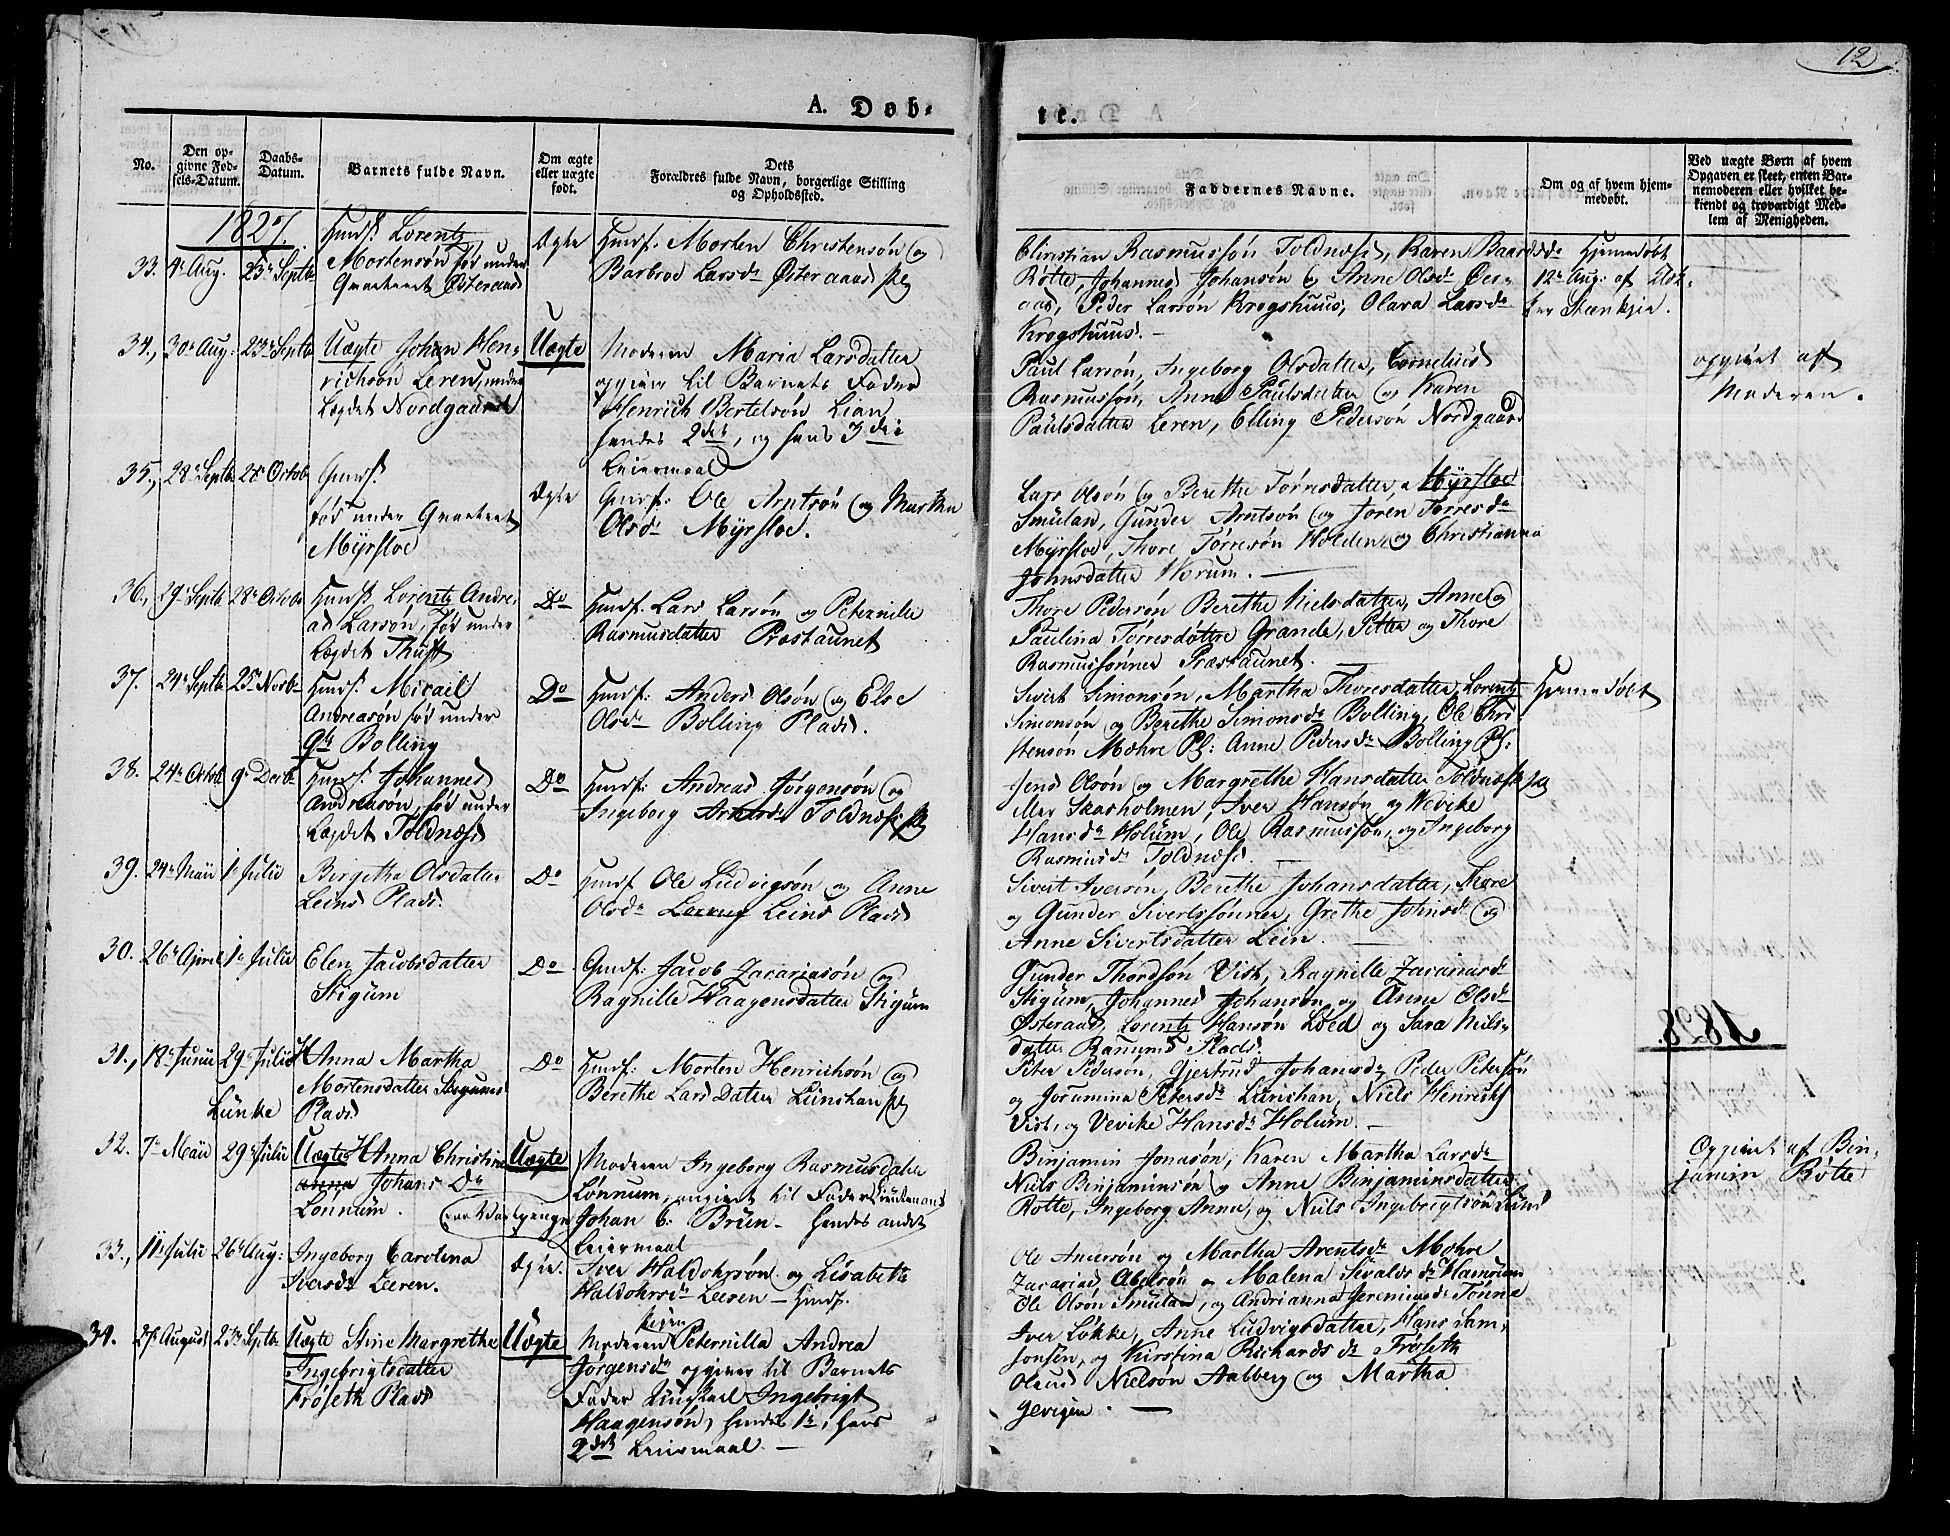 12
A. Døb-
te.
No.
Den op-
givne Fød-
sels-Datum.
Daabs-
Datum.
Barnets fulde Navn.
Om ægte
eller uægte
født.
Dets
Forældres fulde Navn, borgerlige Stilling
og Opholdssted.
Faddernes Navne.
Om og af hvem hjem-
medøbt.
Ved uægte Børn af hvem
Opgaven er skeet, enten Bar-
nemoderen eller hvilket be-
kiendt og troværdigt Med-
lem af Menigheden.
1827
33. 4de Aug. 23de Septb.
Lorentz
Mortensøn fød under
Qvarteret Østeraas
Ægte
Morten Christensøn og
Barbroe Larsd. Østeraas
Christian Rasmussøn Toldnæs, Karen Baardsd.
Røtte, Johannes Johansøn og Anne Olsd.
aas, Peder Larsøn Krogshuus, Olava Larsd.
Krogshuus.
Hjemmedøbt
12te Aug: af Klok-
ker Steenkjer.
34. 30te Aug: 23de Septb
Uægte Johan Hen-
richsøn Leren, under
Lægdet Nordgaard
Uægte
Moderen Maria Larsdatter
opgiver til Barnets Fader
Henrich Bertelsøn Lian
hendes 2det, og hans 3die
Leiermaal
Paul Larsøn, Ingeborg Olsdatter, Cornelius
Rasmussøn, Anne Paulsdatter og Karen
Paulsdatter Leren, Elling Pedersøn Nordgaard
opgivet af
Moderen.
35. 28de Septb 28de Octob
fød under Qvarteret
Myrsloe
Ægte
Ole Arntsøn og Martha
Olsd. Myrsloe.
Lars Olsøn og Berethe Torresdatter, Myrsloe
Smulan, Gunder Arntsøn og Joren Torresd.
Myrsloe, Thore Tørresøn Holden og Christianna
Johnsdatter Worum.
36. 29de Septb 28de Octob
Lorentz Andre-
as Larsøn, fød under
Lægdet Thuft
Do
Lars Larsøn og Peternille
Rasmusdatter Præstaunet
Thore Pedersøn Berethe Nielsdatter, Anne og
Paulina Torresdøttre Grande, Petter og Thore
Rasmussønner Præstaunet.
37. 24de Septb 25de Novb
Micail
Andreasøn fød under
Bolling
Do
Anders Olsøn og Else
Olsd. Bolling Plads.
Sivert Simonsøn, Martha Thoresdatter, Lorentz
Simonsøn og Berethe Simonsd. Bolling, Ole Chri
stensøn Mohre Pl: Anne Pedersd. Bolling Pl:
Hjemmedøbt
38. 24de Octob 9de Decb
Johannes
Andreasøn, fød under
Lægdet Toldnæs
Do
Andreas Jørgensøn og
Ingeborg Arntsd. Toldnæs
Jens Olsøn og Margrethe Hansdatter Toldnæs
Skarholmen, Iver Hansøn og Wevike
Hansd. Holum, Ole Rasmussøn, og Ingeborg
Rasmusd. Toldnæs.
39. 24de Maii 1ste Julii
Birgetha Olsdatter
Leins Plads.
Do
Ole Ludvigsøn og Anne
Olsd. Leins Plads
Sivert Iversøn, Berethe Johansdatter, Thore
og Gunder Sivertssønner, Grethe Johnsd. og
Anne Sivertsdatter Lein.
30. 26de April 1ste Julii
Elen Jacobsdatter
Stigum
Do
Jacob Zacariasøn
og
Ragnille Haagensdatter Stigum
Gunder Thordsøn Vist, Ragnille Zacariasd.
Stigum, Johannes Johansøn og Anne Olsd.
Østeraas, Lorentz Hansøn Loed og Sara Niels-
datter Ranums Plads.
31. 18de Junii 29de Julii
Anna Martha
Mortensdatter Stigums
Plads
Lünke
Do
Morten Henrichsøn og
Berethe Lars Datter
Peter Pedersøn, Gjertrud Johansd. Peder Petersøn
og Josumina Petersd. Lünchan, Niels Henrichs
Vist, og Vevike Hansd. Holum.
32. 7de Maii 29de Julii
Uægte Anna Christine
Johans Dr
Lonnum.
Uægte
Moderen Ingeborg Rasmusdatter
Lønnum, angivet til Fader
Johan C. Brün - hendes andet
Leiermaal
Binjamin Jonasøn, Karen Martha Larsd.
Niels Binjaminsøn og Anne Binjaminsdatter
Rotte, Ingeborg Anna, og Niels Ingebrigtsøn
Opgivet af Bin-
jamin Røtte
33. 11te Julii 26de Aug:
Ingeborg Carolina
Iversd. Leeren.
Ægte.
Iver Haldohrsøn og Lisabeth
Haldohrsd. Leeren
Ole Andersøn og Martha Arentsd. Mohre
Zacarias Abelsøn og Malena Sivalds d.
Ole Olsøn Smulan, og Andrianna Jeremiasd.
34. 27de August 23de Septb
Uægte Stine Margrethe
Ingebrigtsdatter
Frøseth Plads
Uægte
Moderen Pigen Peternilla Andrea
Jørgensd. opgiver til Barnets
Fader Ungkarl Ingebrigt
Haagensøn, hendes 1te, hans
2det Leiermaal.
Iver Løkke, Anne Ludvigsdatter, Hans Sam-
sonsen, og Kirstina Richards d. Frøseth
Olaus Nielsøn Aalberg og Martha
Gevigen.